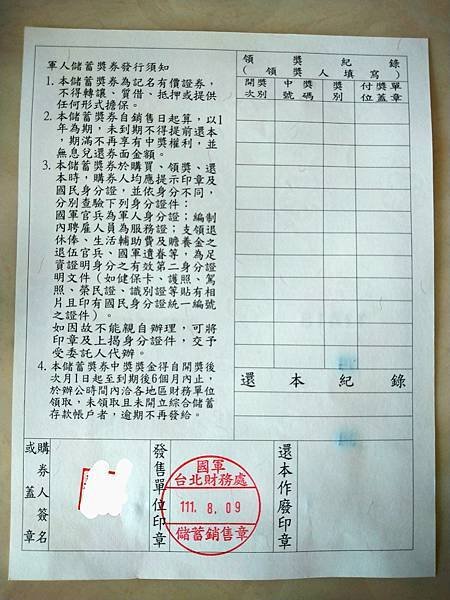 軍人儲蓄獎券發行須知
1. 本儲蓄獎券為記名有價證券，
不得轉讓、質借、抵押或提供
任何形式擔保。
2. 本儲蓄獎券自銷售日起算，以1
年為期，未到期不得提前還本
，期滿不再享有中獎權利，並
無息兌還券面金額。
3. 本儲蓄獎券於購買、領獎、還
本時，購券人均應提示印章及
國民身分證，並依身分不同，
分別查驗下列身分證件：
國軍官兵為軍人身分證；編制
內聘雇人員為服務證；支領退
休俸、生活輔助費及贍養金之
退伍官兵、國軍遺眷等，為足
資證明身分之有效第二身分證
明文件（如健保卡、護照、駕
照、榮民證、識別證等貼有相
片且印有國民身分證統一編號
之證件）。
如因故不能親自辦理，可將
印章及上揭身分證件，交予
受委託人代辦。
4. 本儲蓄獎券中獎獎金得自開獎後
次月1日起至到期後6個月內止，
於辦公時間內洽各地區財務單位
領取，未領取且未開立綜合儲蓄
存款帳戶者，逾期不再發給。
領獎紀錄
（領獎人填寫）
開獎次別 中獎號碼 獎別 付獎單位蓋章
還本紀錄
購券人簽名或蓋章
發售單位印章
國軍
台北財務處
111. 8. 09
儲蓄銷售章
還本作廢印章